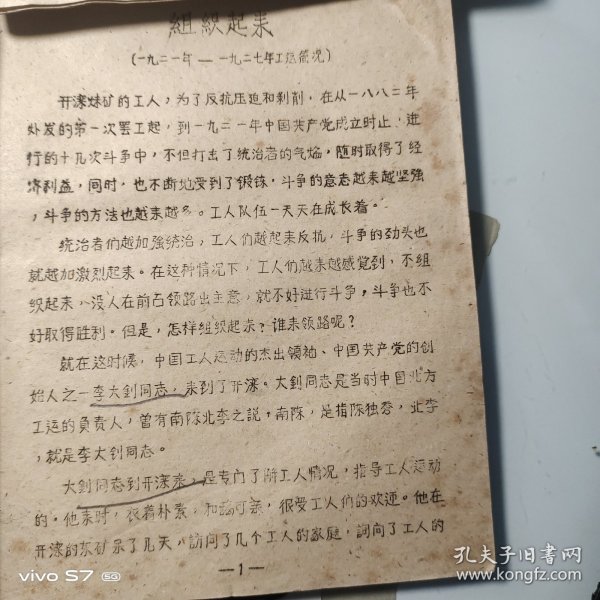 组织起来
(一九二一年—一九二七年工运简况)
开滦煤矿的工人,为了反抗压迫和剥削,在从一八八二年
处发的第一次罢工起,到一九二一年中国共产党成立时止,进
行的十几次斗争中,不但打击了统治者的气焰,随时取得了经
济利益,同时,也不断地受到了锻铢,斗争的意志越来越坚強
,斗争的方法也越来越多。工人队伍一天天在成长着。
统治者们越加強统治,工人们越起来反抗,斗争的劲头也
就越加激烈起来。在这种情况下,工人们越来越感觉到,不组
织起来,没人在前石领路出主意,就不好进行斗争,斗争也不
好取得胜利。但是,怎样组织起来?谁来领路呢?
就在这时候,中国工人运动的杰出领袖、中国共产党的创
始人之一李大钊同志,来到了开滦。大钊同志是当时中国北方
工运的負责人,曾有南陈北李之説,南陈,是指陈独秀,北李
,就是李大钊同志。
大钊同志到开滦来,是专门了解工人情况,指导工人运动
的。他来时,衣着朴素,和蔼可亲,很受工人们的欢迎。他在
开滦的东矿呆了几天,訪问了几个工人的家庭,詞问了工人的
—1—
vivo S7 5G
孔夫子旧书网
www.kongfz.com